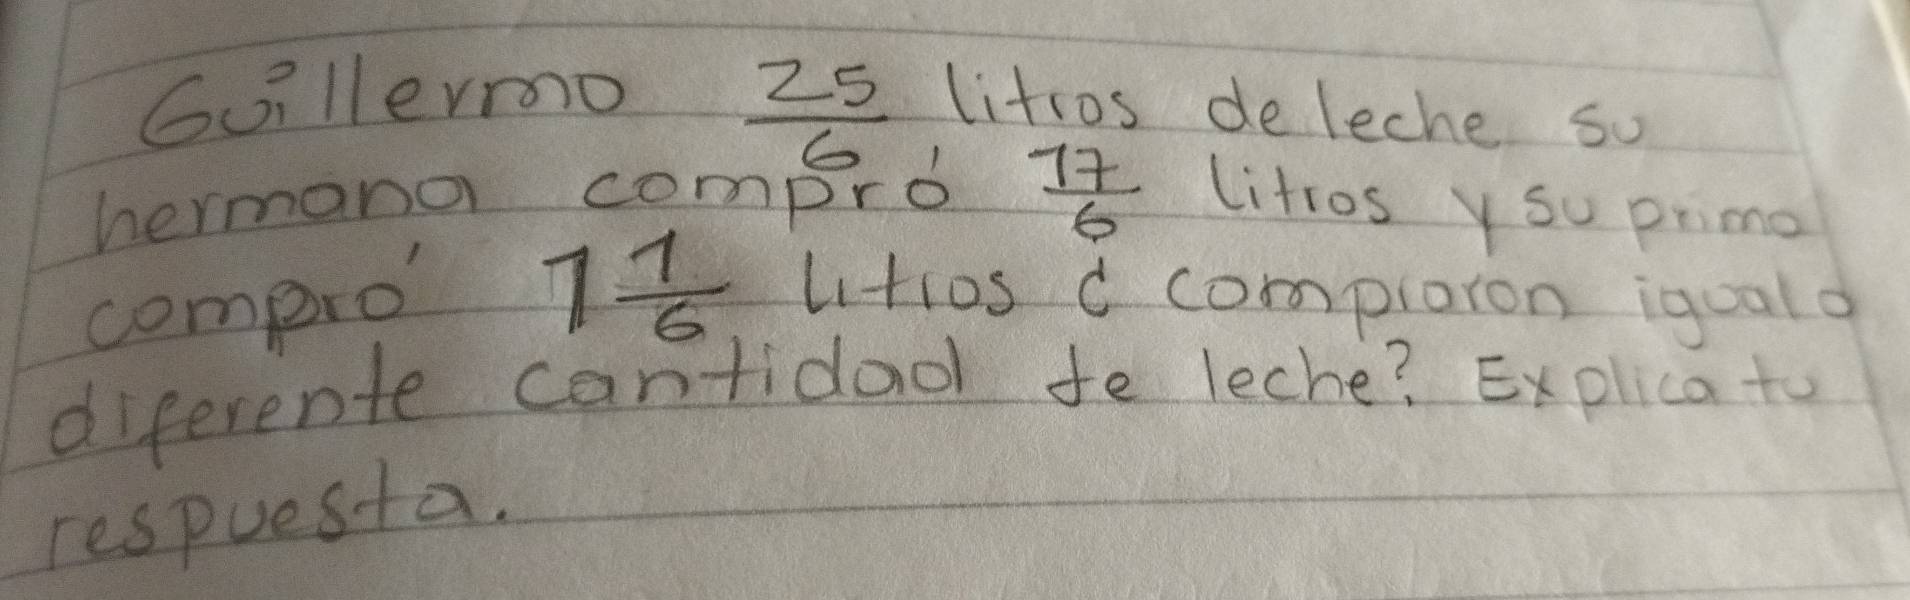 Guillermo 25/6 litros de leche su
hermana compró 17/6 litros y su primo
compró 1 1/6 litros ¿ compraron igual o
diferente cantidad de leche? Explica tu
respuesta.